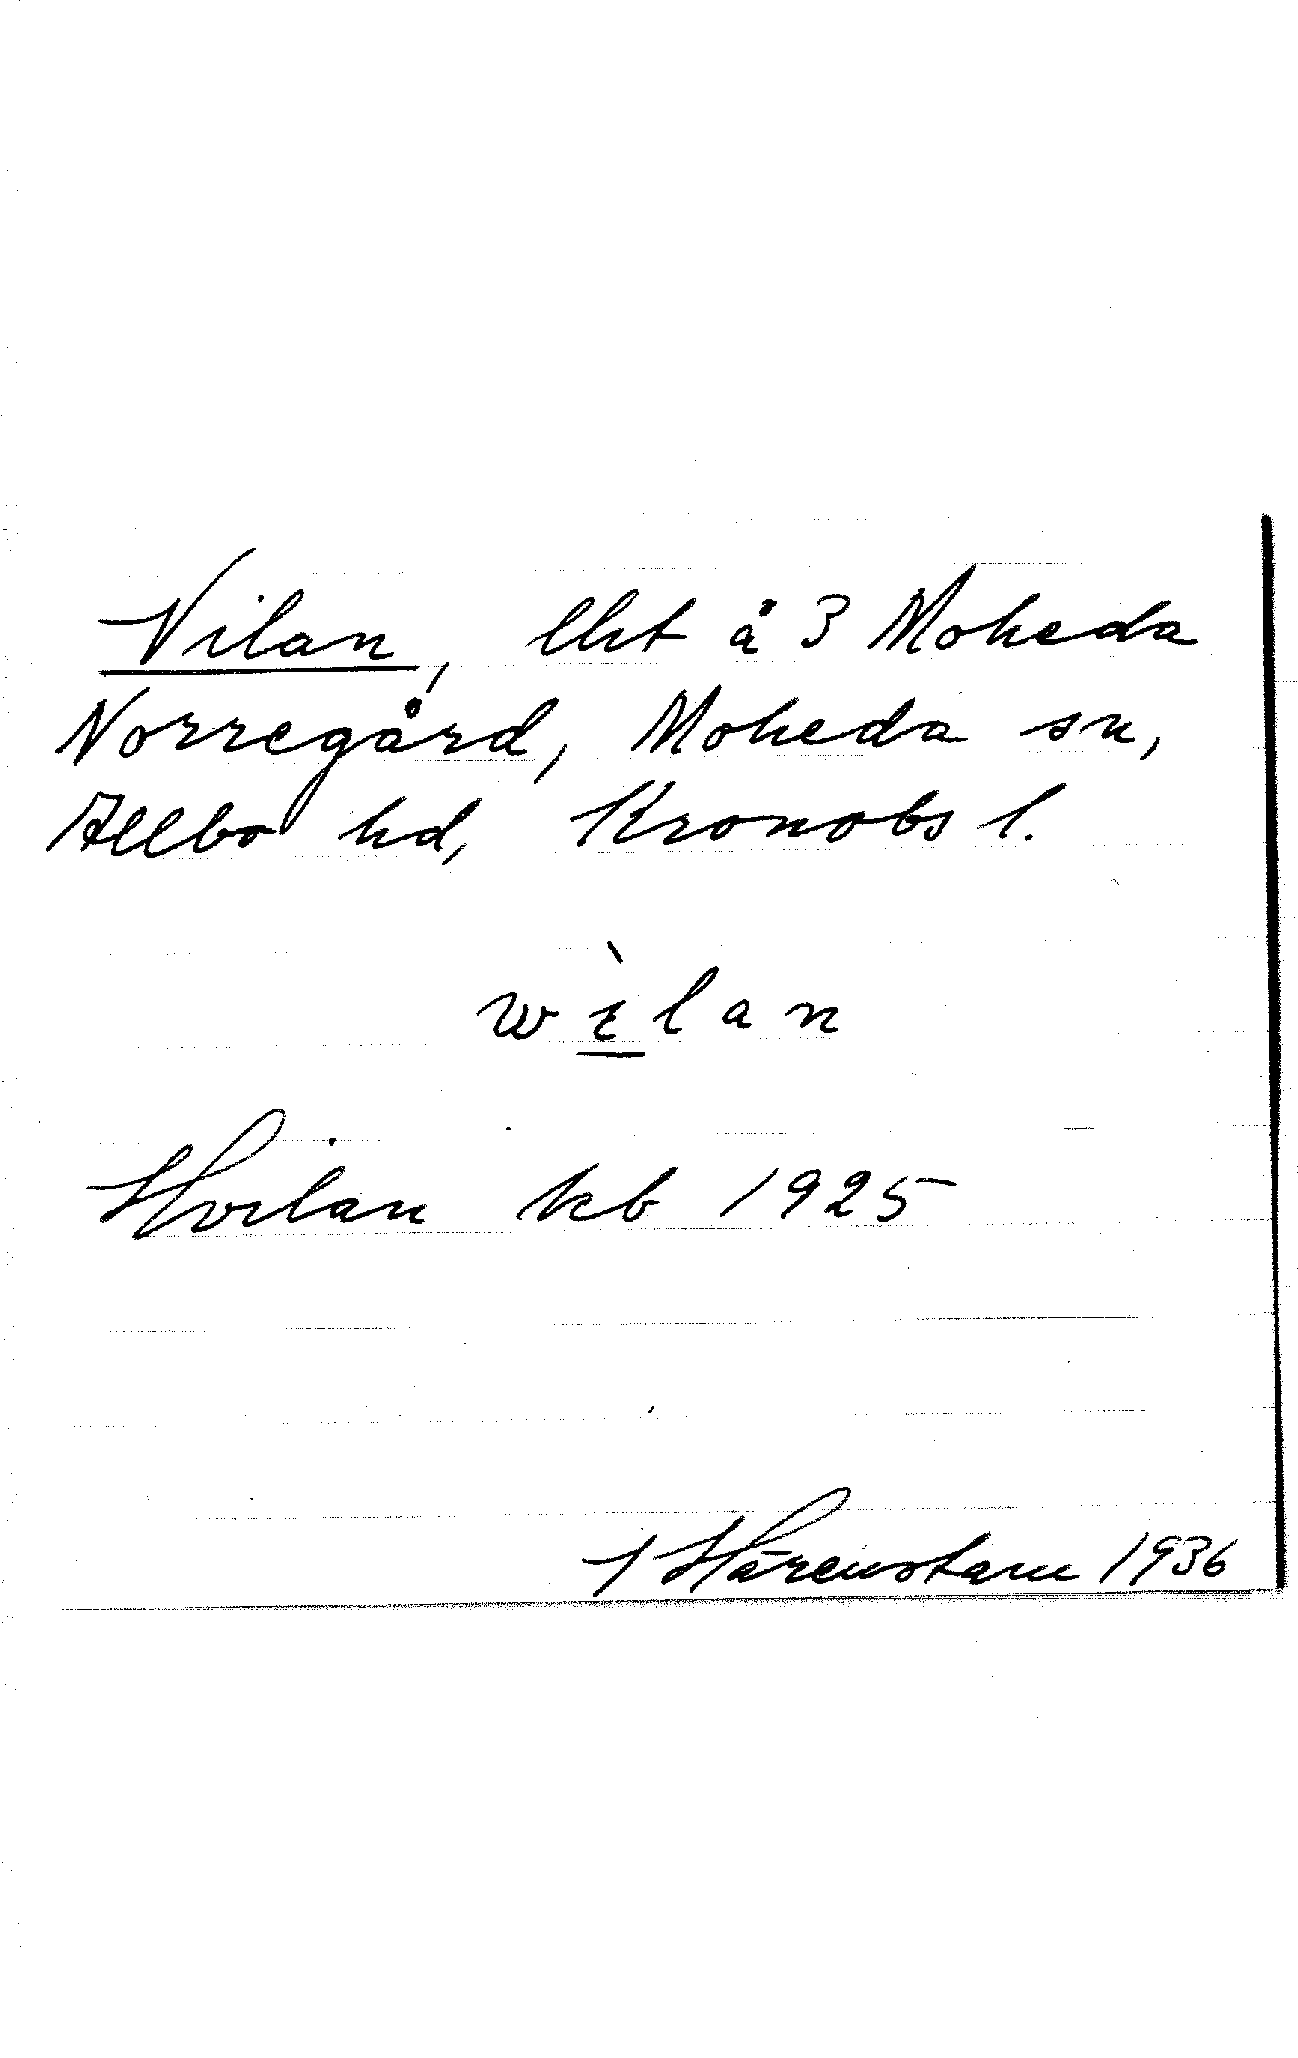 Vilan, lht å 3 Moheda
Norregård, Moheda sn,
Allbo hd, Kronobs l.
wìlan
Hvilan kb 1925
Hårenstam 1936